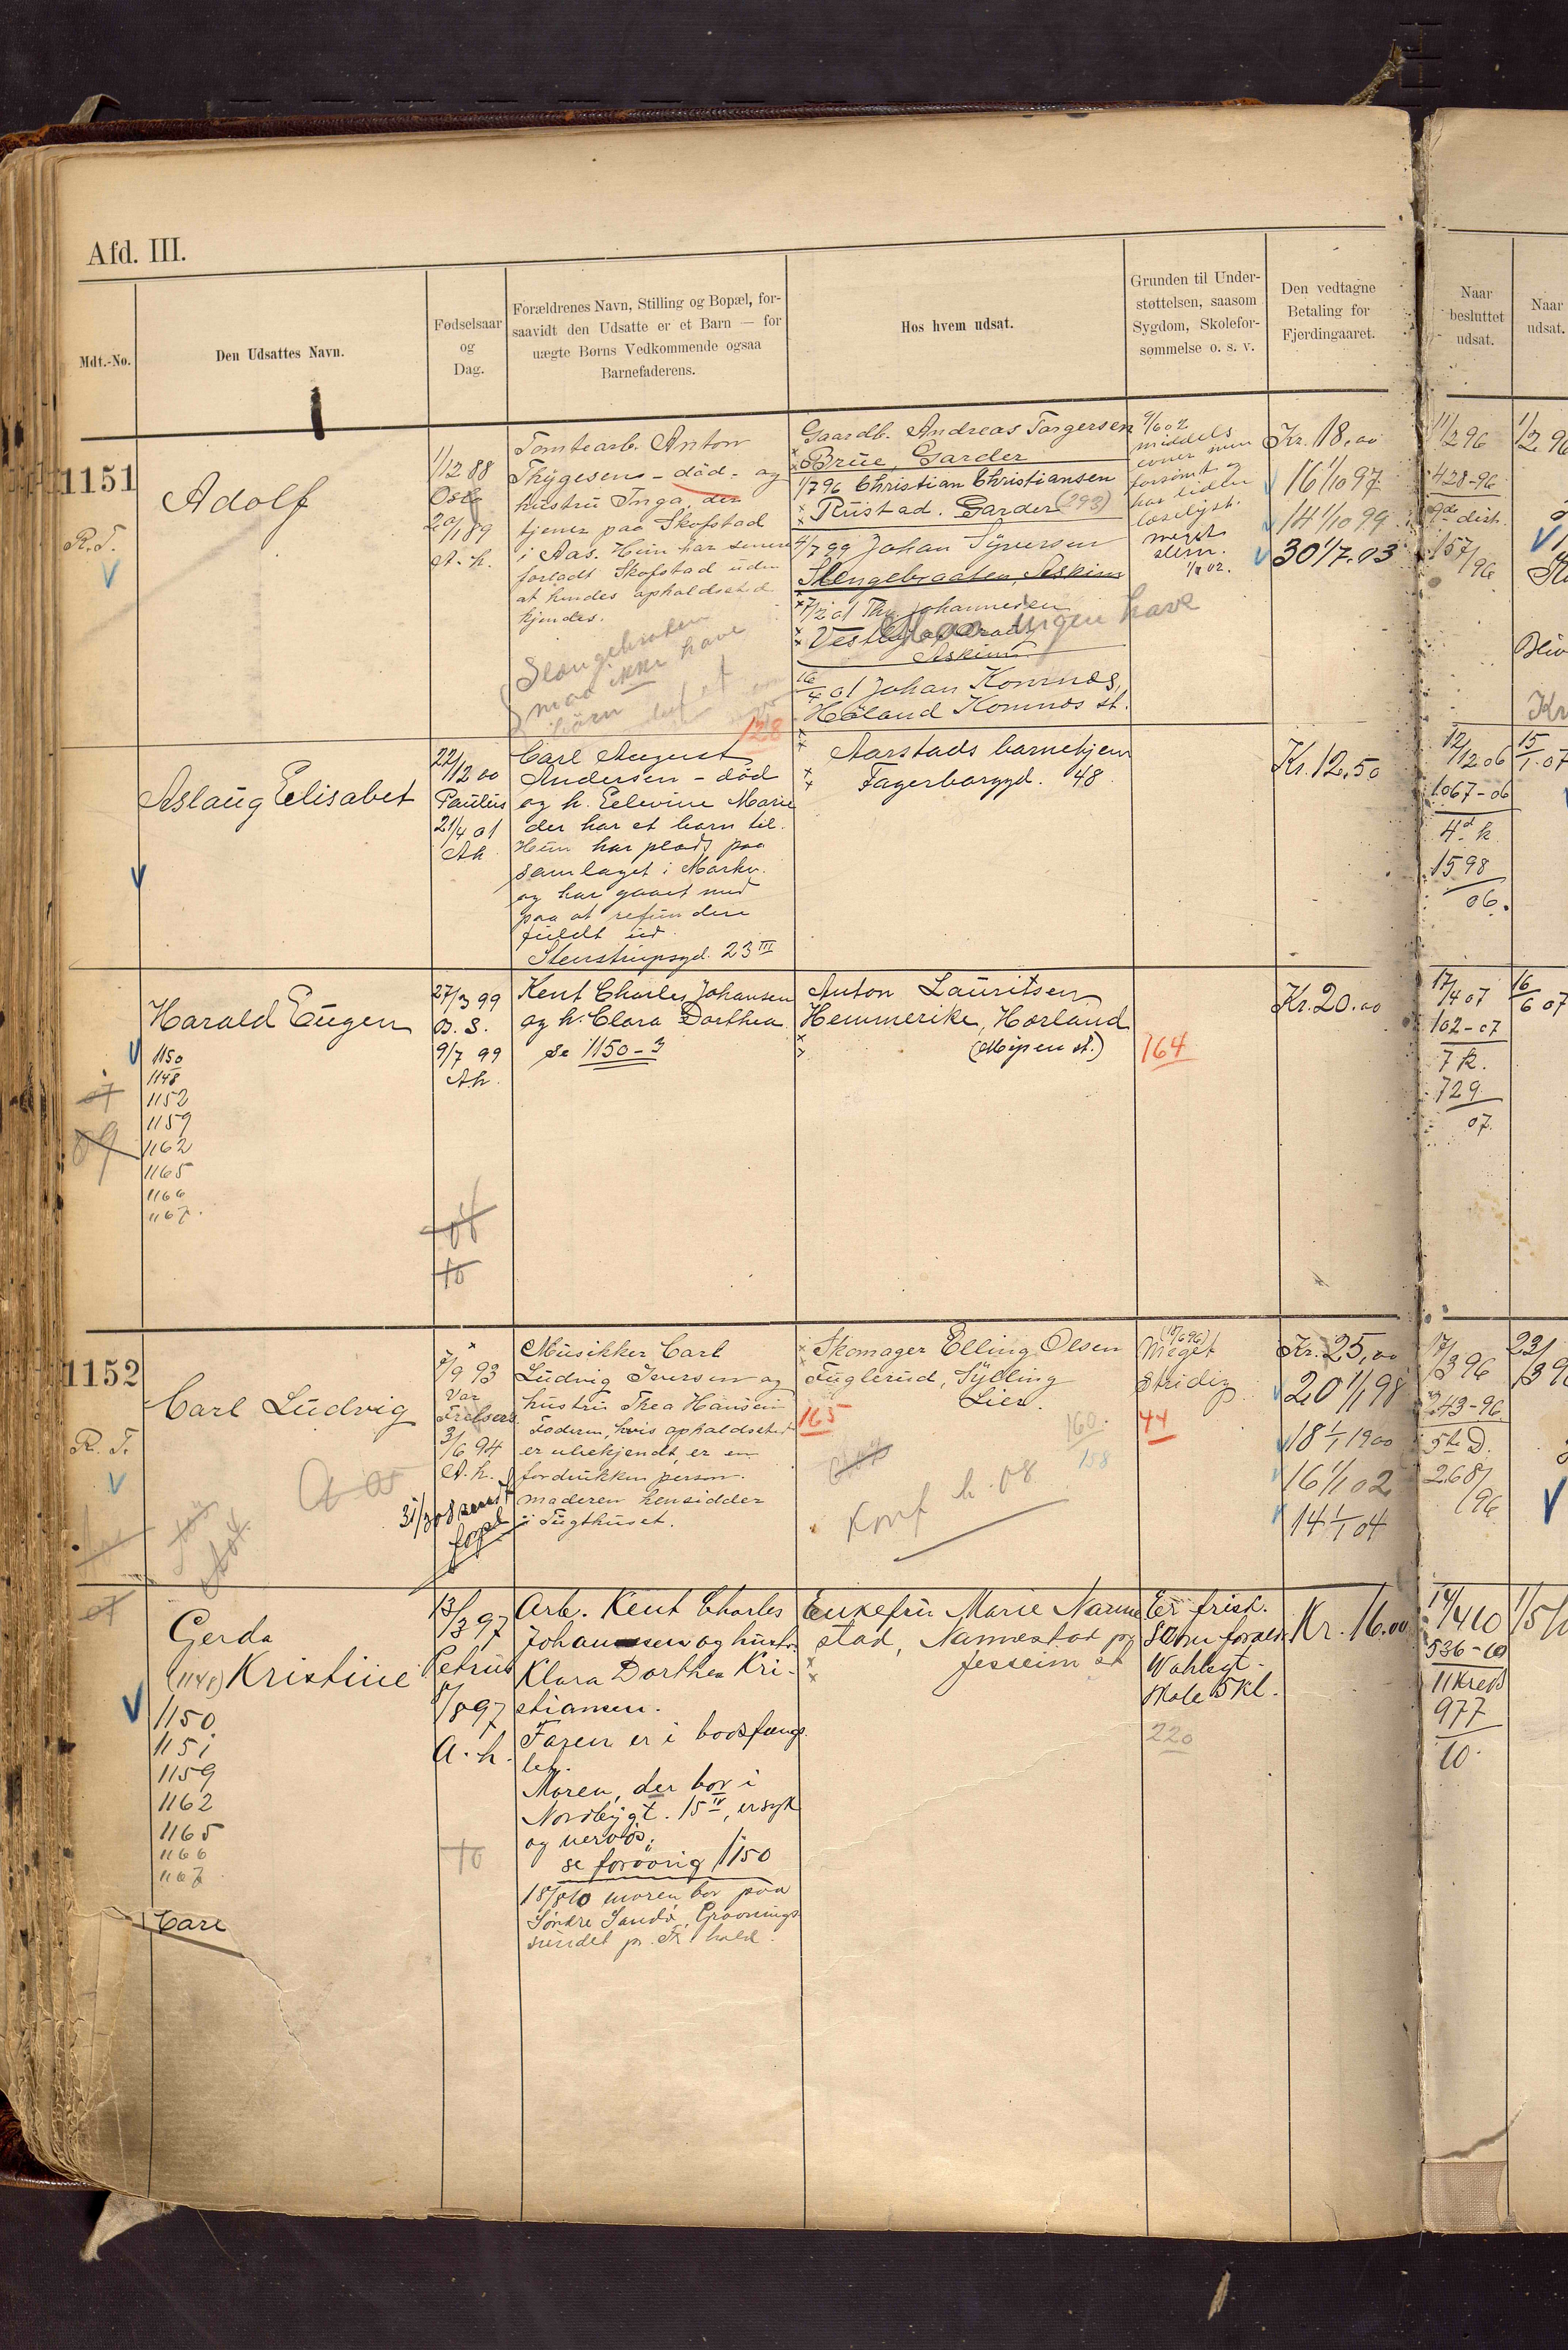 Afd. III.
Mdt.-No.
Den Udsattes Navn.
Fødselsaar
og
Dag.
Forældrenes Navn, Stilling og Bopæl, for-
saavidt den Udsatte er et Barn — for
uægte Børns Vedkommende ogsaa
Barnefaderens.
Hos hvem udsat.
Grunden til Under-
støttelsen, saasom
Sygdom, Skolefor-
sømmelse o. s. v.
Den vedtagne
Betaling for
Fjerdingaaret.
Naar
besluttet
udsat.
Naar
udsat.
1151
R. T.
Adolf
1/12 88
Oslo
20/1 89
A. h.
Tomtearb. Anton
Thygesens - död - og
hustru Inga, der
tjener paa Skofstad
i Aas. Hun har senere
forladt Skofstad uden
at hendes opholdssted
kjendes.
Slangebraaten
maa ikke have
börn
128
Gaardb. Andreas Torgersen
Brue, Garder
1/7 96 Christian Christiansen
Rustad. Garder (293)
4/7 99 Johan Syversen
Slengebraaten, Askim
7/2 01 Th. Johannesen
Askim
ingen have
16/4 01 Johan Komnæs,
Höland Komnæs st.
9/6 02
middels
evner men
forsömt og
har lidt
meget
slem.
1/8 02.
Kr. 18,00
16 1/10 97
14 1/10 99
30 1/7 03
11/2 96
428-96
9de dist.
157/96
1/2 96
Kr
Aslaug Elisabet
22/12 00
Paulus
21/4 01
Ah
Carl August
Andersen - död
og h. Eelevine Marie
der har et barn til.
Hun har plads paa
samlaget i Markv.
og har gaaet med
paa at refundere
fuldt ud.
Stenstrupsgd. 23 III
Aarstads barnehjem
Fagerborggd. 48
Kr. 12,50
12/12 06
1067-06
4d k
1598
06.
15/1 07
Harald Eugen
1150
1148
1152
1159
1162
1165
1166
1167.
07
09
27/3 99
B. S.
9/7 99
A.h.
10
Kent Charles Johansen
og h. Clara Dorthea
se 1150-3
Anton Lauritsen
Hemmerike, Horland
(Mysen st.)
164
Kr. 20.00
17/4 07
102-07
7 k.
729
07.
16/6 07
1152
R. T.
Carl Ludvig
7/9 93
Vor
Frelsers
3/6 94
A. h.
31/3 08 sendt
Musikker Carl
Ludvig Iversen og
hustru Thea Hansen
Faderen, hvis opholdssted
er ubekjendt, er en
fordrukken person.
moderen hensidder
i Tugthuset.
Skomager Elling Olsen
Fuglerud, Sylling
Lier.
165
160.
158
Konf h. 08
Meget
stridig
44
Kr. 25,00
20 1/1 98
18 1/1 1900
16 1/1 02
14 1/1 04
17/3 96
743-96
5te D.
268/96
23/3 96
07
Gerda
(1148) Kristine
1150
1151
1159
1162
1165
1166
1167
Carl
13/3 97
Petrus
8/8 97
A. h.
10
Arb. Kent Charles
Johanssen og hustr.
Klara Dorthea Kri-
stiansen.
Faren er i bodsfæng-
let.
Moren, der bor i
Nordbygt. 15 IV, er syk
og nervös;
se forövrig 1150
18/8 10 moren bor paa
Söndre Sandö, Graanings
sundet pr. Fr. hald.
Enkefru Marie Nanne
stad, Nannestad pr
Jesseim st
Er frisk.
Som foraldr.
Wahlsgt.-
skole 5 kl.
220
Kr. 16.00
14/4 10
536-10
11 Kreds
977
10.
1/5 10